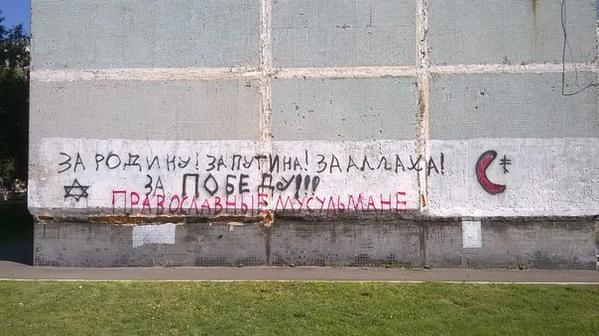 ЗА РОДИНУ! ЗА ПУТИНА! ЗА АЛЛАХА!
ЗА ПОБЕДУ!!!
ПРАВОСЛАВНЫЕ МУСУЛЬМАНЕ